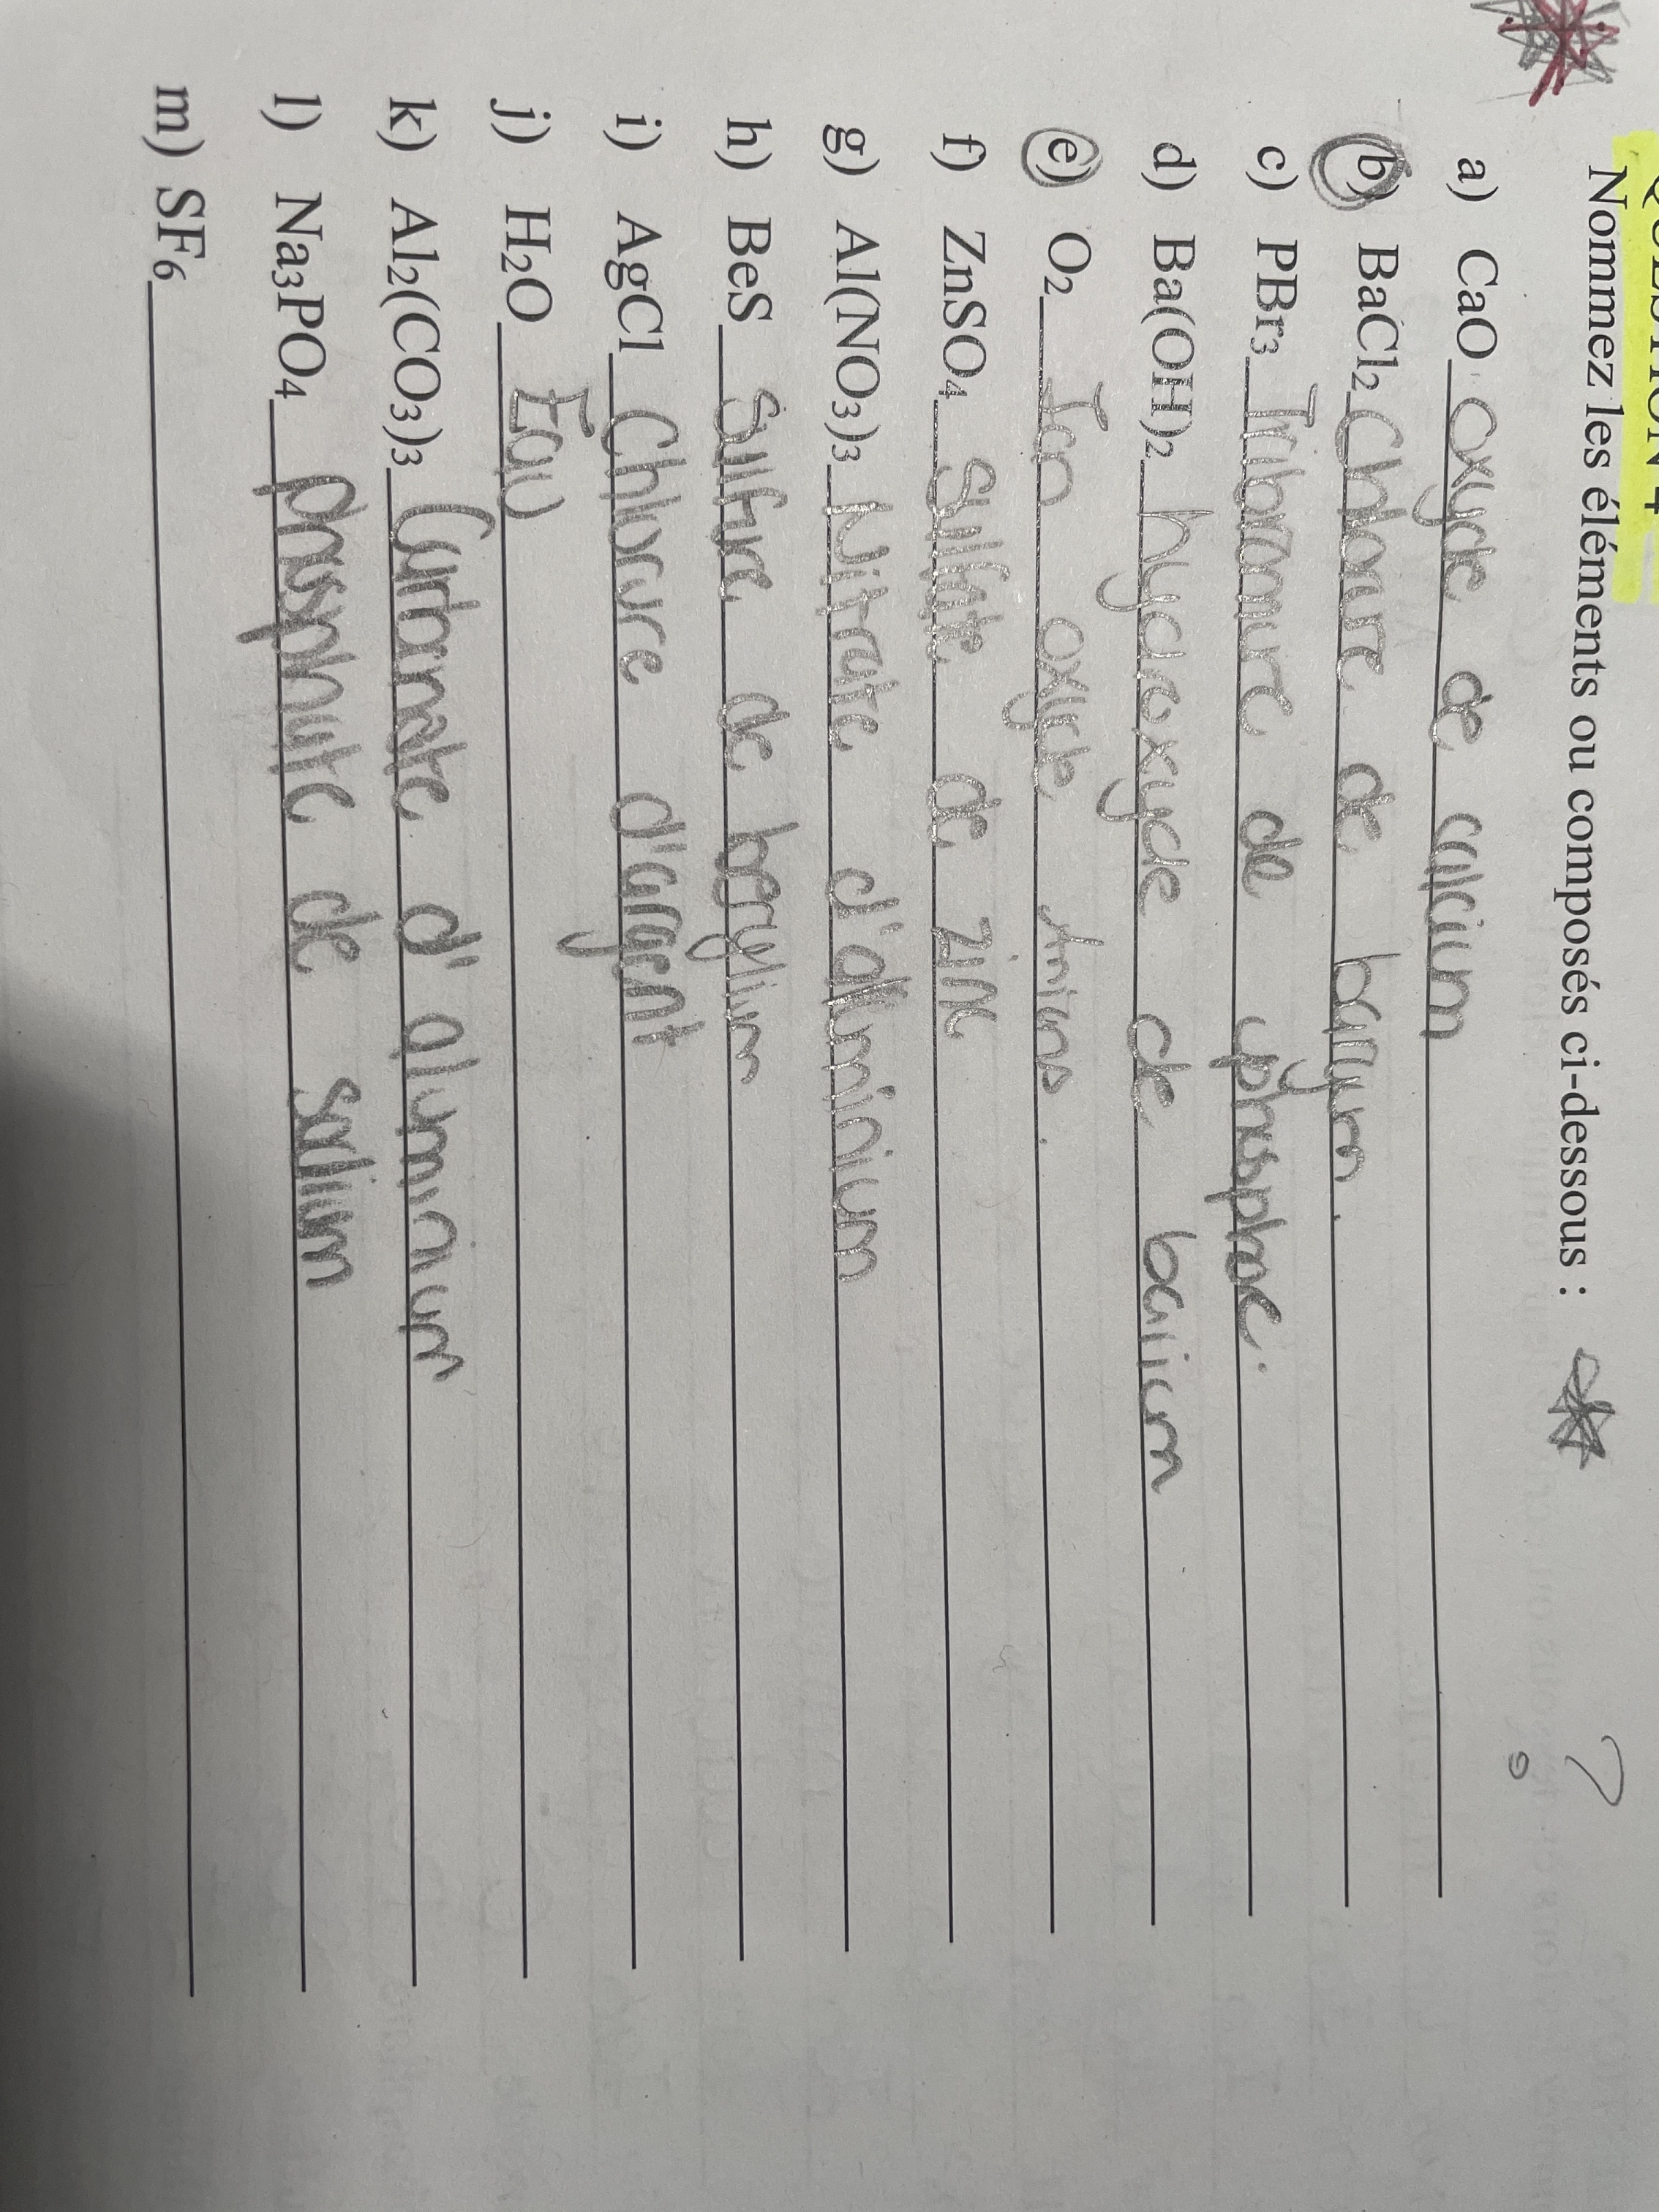 QUESTION 4
Nommez les éléments ou composés ci-dessous : ?
a) CaO oxyde de calcium
b) BaCl₂ Chlorure de baryum.
c) PBr₃ Tribromure de phosphore.
d) Ba(OH)₂ hydroxyde de barium
e) O₂ Ion oxyde
f) ZnSO₄ Sulfate de zinc
g) Al(NO₃)₃ Nitrate d'aluminium
h) BeS Sulfure de berylium
i) AgCl Chlorure d'argent
j) H₂O Eau
k) Al₂(CO₃)₃ Carbonate d'aluminium
l) Na₃PO₄ phosphate de sodium
m) SF₆